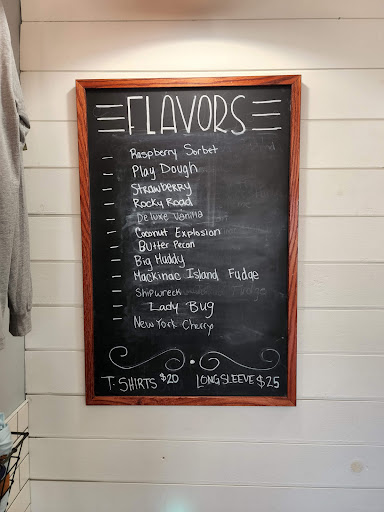 FLAVORS
Raspberry Sorbet
Play Dough
Strawberry
Rocky Road
Deluxe Vanilla
Coconut Explosion
Butter Pecan
Big Muddy
Mackinac Island Fudge
Shipwreck
Lady Bug
New York Cherry
T-SHIRTS $20 LONG SLEEVE $25